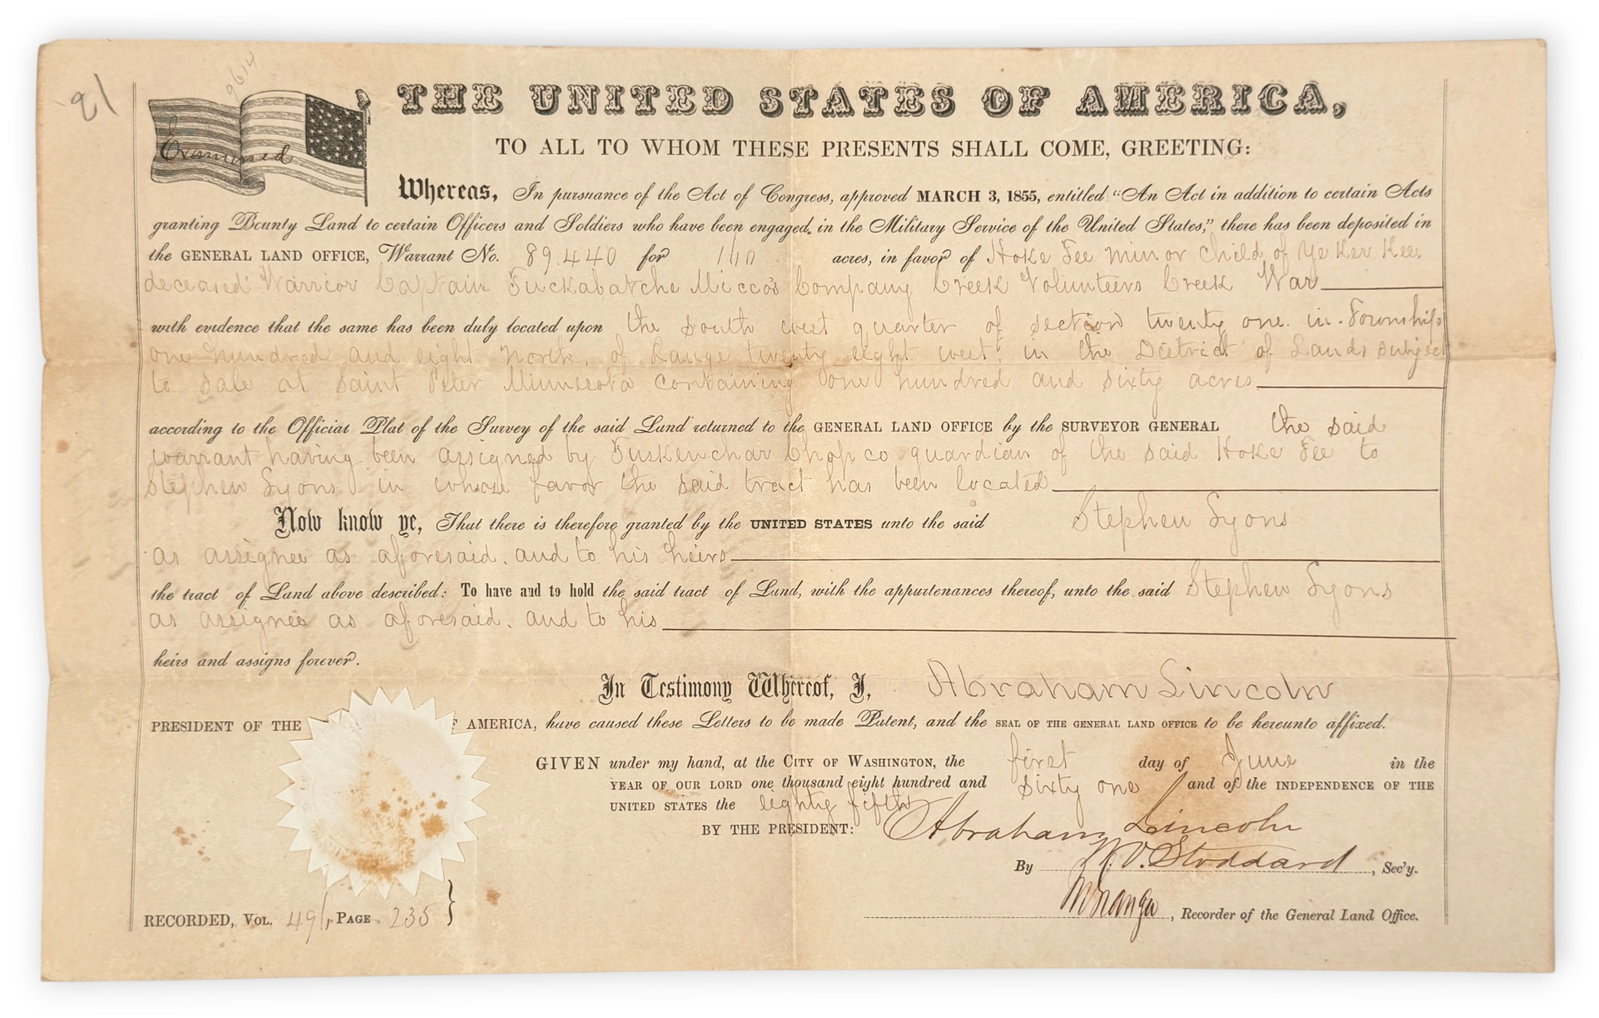 21
2614
Examined
THE UNITED STATES OF AMERICA,
TO ALL TO WHOM THESE PRESENTS SHALL COME, GREETING:
Whereas, In pursuance of the Act of Congress, approved MARCH 3, 1855, entitled "An Act in addition to certain Acts
granting Bounty Land to certain Officers and Soldiers who have been engaged in the Military Service of the United States," there has been deposited in
the GENERAL LAND OFFICE, Warrant No. 89.440 for 160 acres, in favor of Hoke Fee minor child of Yeker Kee
deceased Warrior Captain Tuckabatche Micco's Company Creek Volunteers Creek War
with evidence that the same has been duly located upon the South west quarter of section twenty one in Township
one hundred and eight North, of Range twenty eight west, in the District of Lands subject
to sale at Saint Peter Minnesota containing one hundred and sixty acres
according to the Official Plat of the Survey of the said Land returned to the GENERAL LAND OFFICE by the SURVEYOR GENERAL the said
warrant having been assigned by Tuskenchar Chopco guardian of the said Hoke Fee to
Stephen Lyons in whose favor the said tract has been located
Now know ye, That there is therefore granted by the UNITED STATES unto the said Stephen Lyons
as assignee as aforesaid. and to his heirs
the tract of Land above described: To have and to hold the said tract of Land, with the appurtenances thereof, unto the said Stephen Lyons
as assignee as aforesaid. and to his
heirs and assigns forever.
In Testimony Whereof, I, Abraham Lincoln
PRESIDENT OF THE F AMERICA, have caused these Letters to be made Patent, and the SEAL OF THE GENERAL LAND OFFICE to be hereunto affixed.
GIVEN under my hand, at the CITY OF WASHINGTON, the first day of June in the
YEAR OF OUR LORD one thousand eight hundred and Sixty one and of the INDEPENDENCE OF THE
UNITED STATES the eighty fifth
BY THE PRESIDENT: Abraham Lincoln
By W.O. Stoddard, Sec'y.
, Recorder of the General Land Office.
RECORDED, VOL. 491, PAGE 235